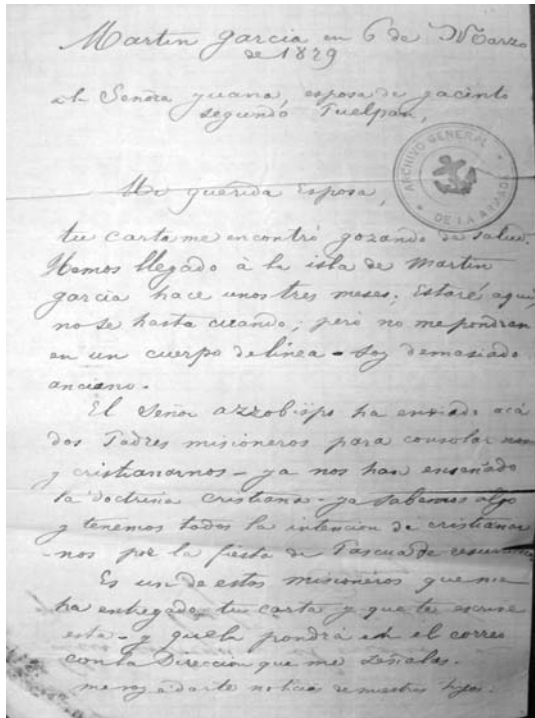 Martin Garcia en 6 de Marzo
de 1879
A la Señora Juana, esposa de Jacinto
segundo Puelpan,
ARCHIVO GENERAL
DE LA ARMADA
Mi querida Esposa,
tu carta me encontró gozando de salud.
Hemos llegado à la isla de Martin
Garcia hace unos tres meses; Estaré aqui,
no se hasta cuando, pero no me pondran
en un cuerpo de linea - soy demasiado
anciano.
El Señor Azzobispo ha enviado acá
dos Padres misioneros para consolarnos
y cristianarnos - ya nos han enseñado
la doctrina cristiana - ya sabemos algo
y tenemos todos la intencion de cristianar
-nos por la fiesta de Pascua de
Es un de estos misioneros que me
ha entregado tu carta y que te escrive
esta - y que la pondrá en el correo
con la Direccion que me señalas.
me voy a darte noticias de nuestros hijos.